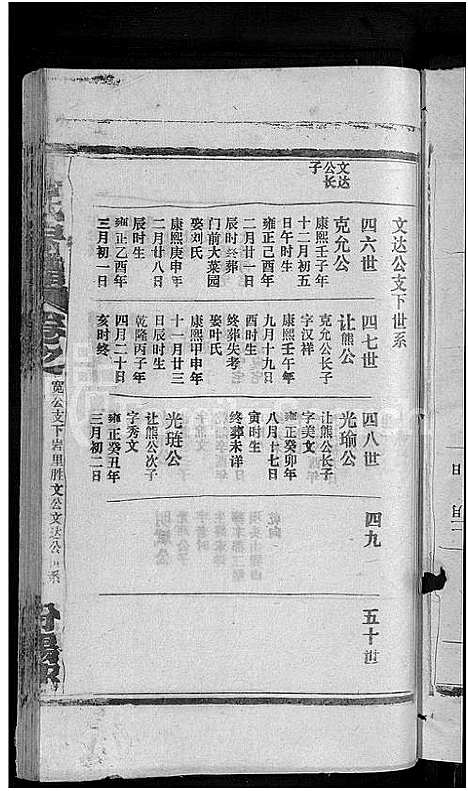 文达公支下世系
文达
公长
子
四六世
克允公
康熙壬子年
十二月初五
日午时生
雍正己酉年
二月廿一日
辰时终葬
门前大菜园
娶刘氏
康熙庚申年
二月廿八日
辰时生
雍正乙酉年
三月初一日
四七世
让熊公
克允公长子
字汉祥
康熙壬午年
九月十九日
酉时生
终葬失考
娶叶氏
康熙甲申年
十一月廿三
日辰时生
乾隆丙子年
四月二十日
亥时终
四八世
光瑜公
让熊公长子
字美文
雍正癸卯年
八月廿七日
寅时生
终葬未详
光琏公
让熊公次子
字秀文
雍正癸丑年
三月初二日
四九
五十世
宽公支下岩里胜文公文达公 系